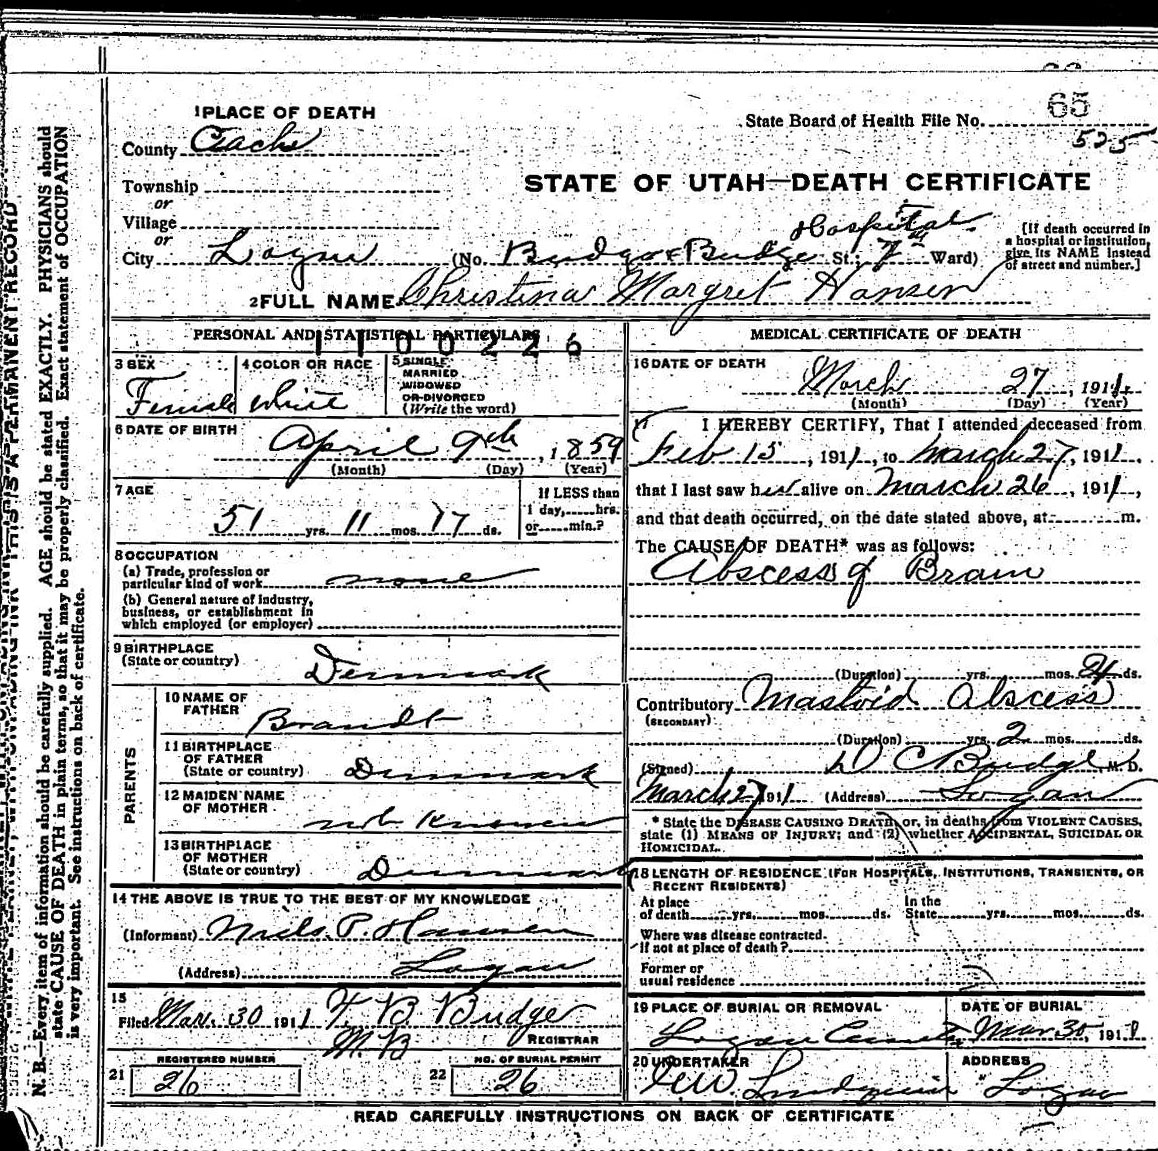 65
State Board of Health File No.
525
1 PLACE OF DEATH
County Cache
STATE OF UTAH—DEATH CERTIFICATE
Township
or
Village
or
Hospital
City Logan (No. Budge & Budge St.; 7th Ward)
[If death occurred in a hospital or institution, give its NAME instead of street and number.]
2 FULL NAME Christina Margret Hansen
PERSONAL AND STATISTICAL PARTICULARS
1100226
3 SEX
Female
4 COLOR OR RACE
White
5 SINGLE
MARRIED
WIDOWED
OR DIVORCED
(Write the word)
6 DATE OF BIRTH
April 9th, 1859
(Month) (Day) (Year)
7 AGE
51 yrs. 11 mos. 17 ds.
If LESS than
1 day,.....hrs.
or.....min.?
8 OCCUPATION
(a) Trade, profession or
particular kind of work none
(b) General nature of industry,
business, or establishment in
which employed (or employer)
9 BIRTHPLACE
(State or country) Denmark
PARENTS
10 NAME OF
FATHER Brandt
11 BIRTHPLACE
OF FATHER
(State or country) Denmark
12 MAIDEN NAME
OF MOTHER
13 BIRTHPLACE
OF MOTHER
(State or country) Denmark
14 THE ABOVE IS TRUE TO THE BEST OF MY KNOWLEDGE
(Informant) Niels P. Hansen
(Address) Logan
15
Filed Mar. 30 1911 B Budge
REGISTRAR
21 REGISTERED NUMBER
26
22 NO. OF BURIAL PERMIT
26
MEDICAL CERTIFICATE OF DEATH
16 DATE OF DEATH
March 27, 1911
(Month) (Day) (Year)
I HEREBY CERTIFY, That I attended deceased from
Feb 15, 1911, to March 27, 1911,
that I last saw her alive on March 26, 1911,
and that death occurred, on the date stated above, at m.
The CAUSE OF DEATH* was as follows:
Abscess of Brain
(Duration) yrs. mos. ds.
Contributory Mastoid Abscess
(SECONDARY)
(Duration) yrs. 2 mos. ds.
(Signed) D C Budge, M. D.
March 27 1911 (Address) Logan
* State the DISEASE CAUSING DEATH, or, in deaths from VIOLENT CAUSES,
state (1) MEANS OF INJURY; and (2) whether ACCIDENTAL, SUICIDAL OR
HOMICIDAL.
18 LENGTH OF RESIDENCE (FOR HOSPITALS, INSTITUTIONS, TRANSIENTS, OR
RECENT RESIDENTS)
At place
of death yrs. mos. ds.
In the
State yrs. mos. ds.
Where was disease contracted.
if not at place of death?
Former or
usual residence
19 PLACE OF BURIAL OR REMOVAL
Logan
DATE OF BURIAL
Mar 30, 1911
20 UNDERTAKER
ADDRESS
Logan
READ CAREFULLY INSTRUCTIONS ON BACK OF CERTIFICATE
N. B.—Every item of information should be carefully supplied. AGE should be stated EXACTLY. PHYSICIANS should
state CAUSE OF DEATH in plain terms, so that it may be properly classified. Exact statement of OCCUPATION
is very important. See instructions on back of certificate.